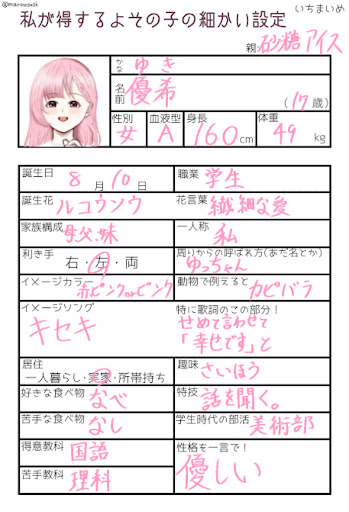 @marinosuok
私が得するよその子の細かい設定
いちまいめ
親 砂糖アイス
かな ゆき
名前 優希
(17歳)
性別 女
血液型 A
身長 160cm
体重 49kg
誕生日 8月10日
職業 学生
誕生花 ルコウソウ
花言葉 繊細な愛
家族構成 母父、妹
一人称 私
利き手 右・左・両
周りからの呼ばれ方(あだ名とか) ゆっちゃん
イメージカラー 赤ピンクorピンク
動物で例えると カピバラ
イメージソング キセキ
特に歌詞のこの部分!
せめて言わせて
「幸せです」と
居住
一人暮らし・実家・所帯持ち
趣味 さいほう
好きな食べ物 なべ
特技 話を聞く。
苦手な食べ物 なし
学生時代の部活 美術部
得意教科 国語
性格を一言で!
優しい
苦手教科 理科